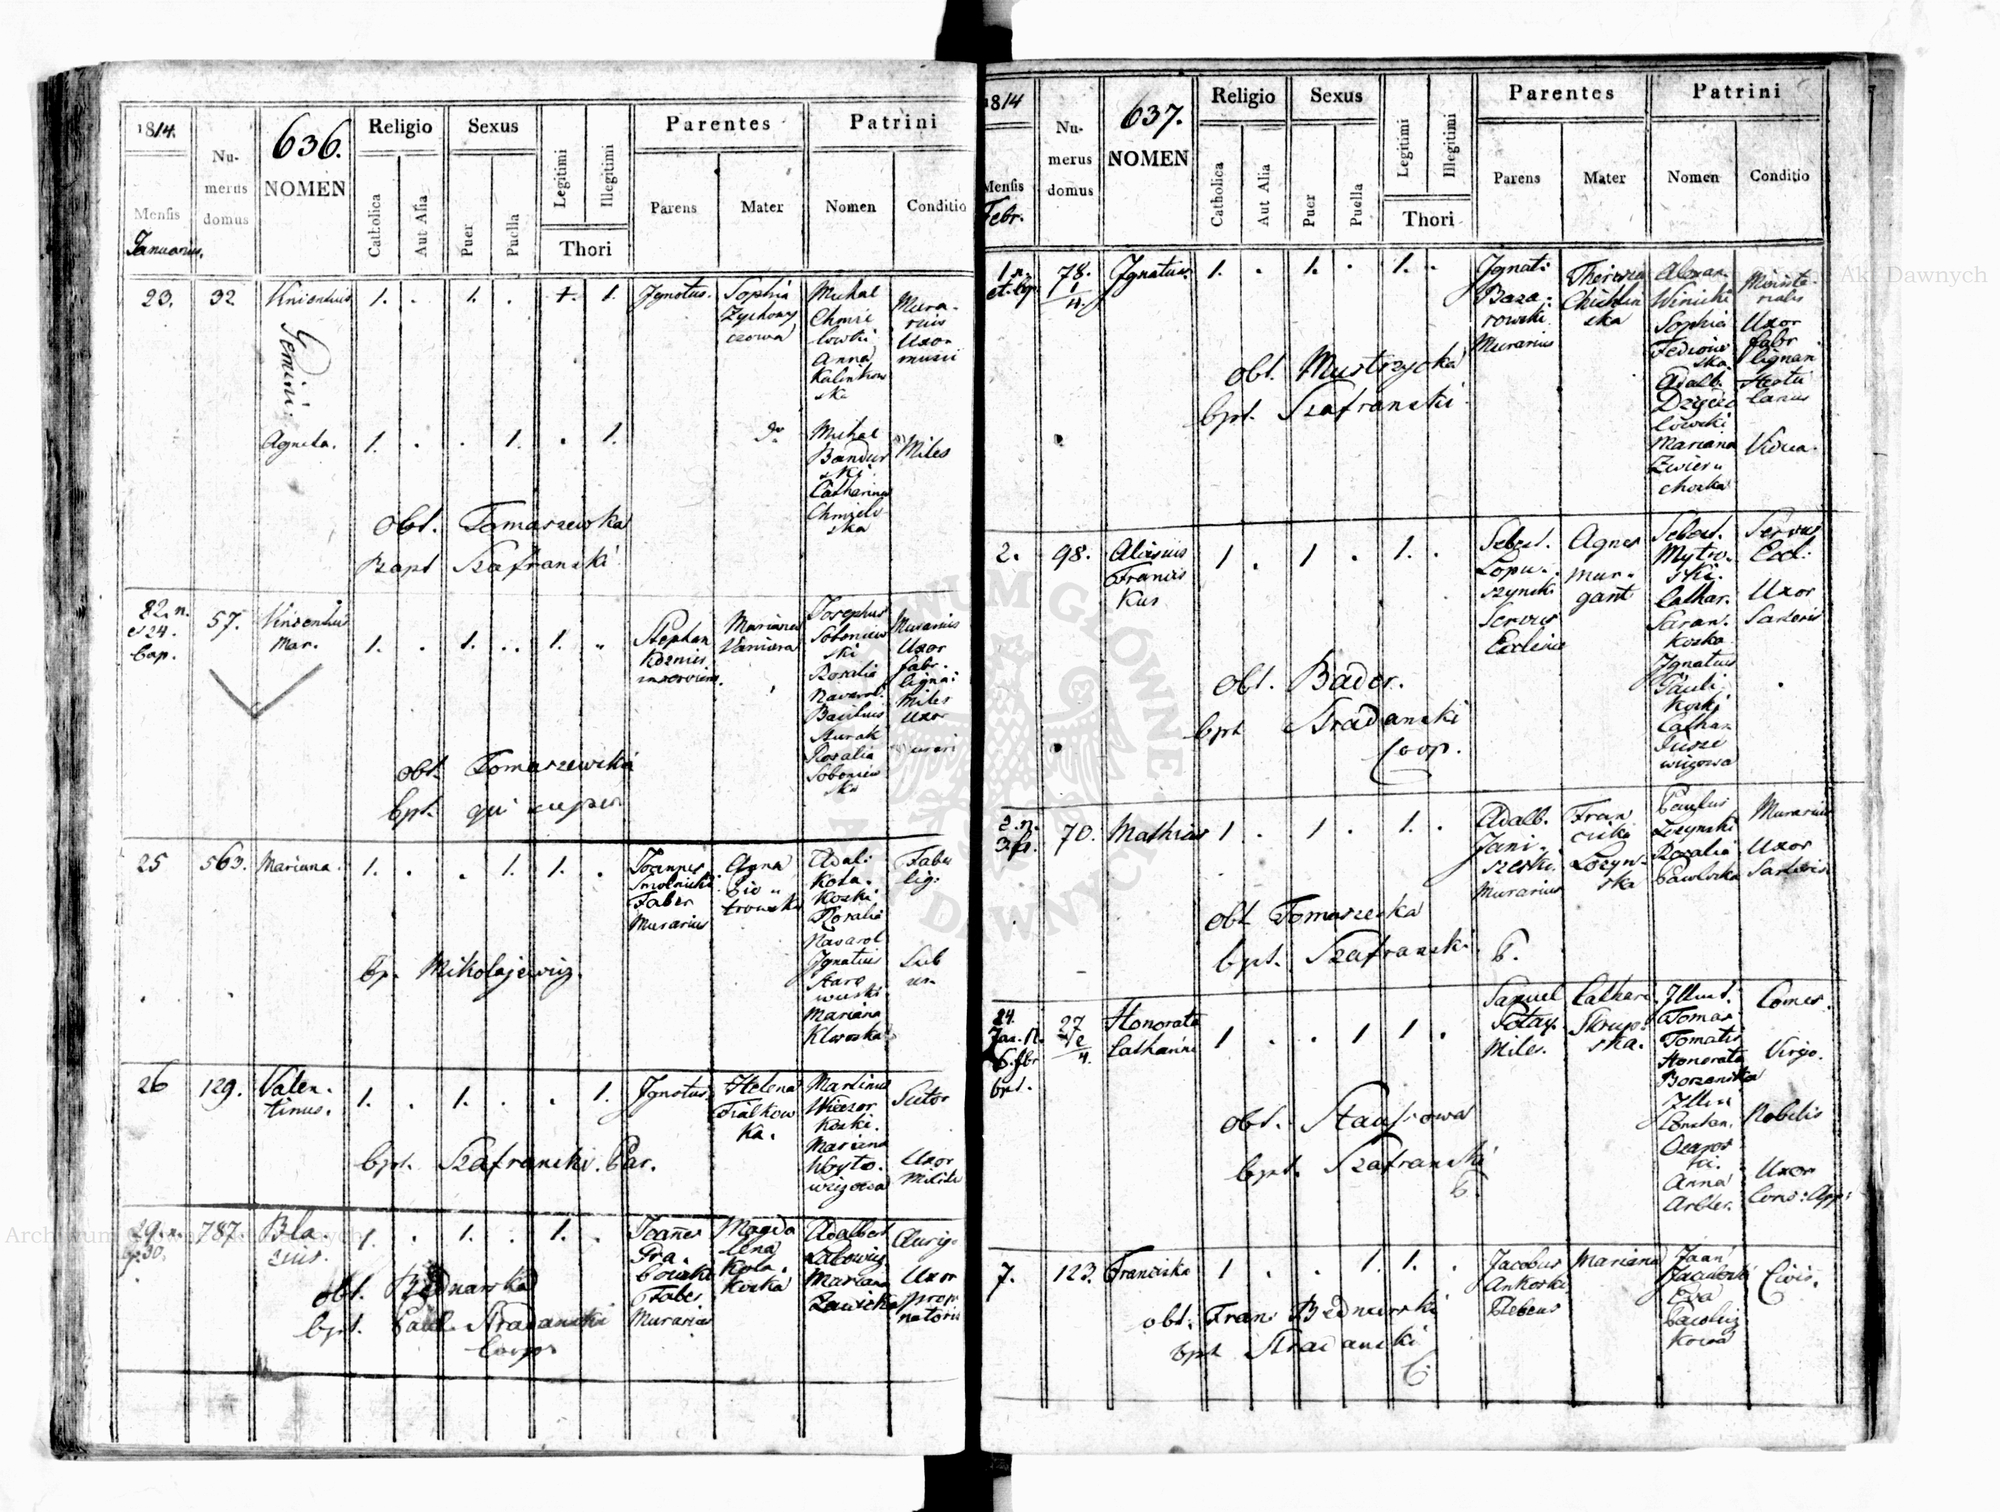 1814.
Mensis
Januarius.
Numerus
domus
636.
NOMEN
Religio
Catholica
Aut Alia
Sexus
Puer
Puella
Legitimi
Illegitimi
Thori
Parentes
Parens
Mater
Patrini
Nomen
Conditio
23.
32
Vincentius
Gemini.
1.
1.
1.
Ignotus.
Sophia
Michal
Chmie
lowski
Anna
Kalinkow
ska
Mura-
rius
Uxor
Agneta.
1.
1.
1.
Michal
Bandur
ski
Catharina
Chmiels
ska
Miles
obt. Tomaszewska
Bapt Szafranski
57.
Vincentius
Mar.
1.
1.
1.
Stephan
Mariana
Josephus
Soboniew
ski
Rosalia
Navarol.
Basilius
Rosalia
Soboniew
ska
Murarius
Uxor
fabr.
ligna:
Miles
Uxor
obt. Tomaszewska
bpt. qui super
25
563.
Mariana.
1.
1.
1.
Joannes
Smolnicki
Faber
Murarius
Anna
Pio
trowska
Adal:
Kola.
koski.
Rosalia
Navarol
Ignatius
Stare
wuski
Mariana
Faber
lig:
bp. Mikolajewicz.
26
129.
Valen-
tinus.
1.
1.
1.
Ignotus
Helena
Fialkow
ka.
Martinus
Wieczor
koski.
Mariana
Woyto.
wiczowa
Sutor
Uxor
Militis
bpt. Szafranski. Par.
29. n.
bp. 30.
787.
Bla
sius.
1.
1.
1.
Joannes
Gra.
bowski
Faber
Murarius
Magda
lena
Kola.
koska
Adalbert
Mariana
Zawicka
Auriga
Uxor
prop
natoris
obt. Bednarska
bpt. Paul. Stradanski
Coop.
1814
Mensis
Febr.
Numerus
domus
637.
NOMEN
Religio
Catholica
Aut Alia
Sexus
Puer
Puella
Legitimi
Illegitimi
Thori
Parentes
Parens
Mater
Patrini
Nomen
Conditio
1. n.
et. bp.
78.
1/4.
Ignatius
1.
1.
1.
Ignat:
Baza:
rowski
Murarius
Theresia
Cichlin
ska
Alexan.
Winicki
Sophia
Fedorow
ska.
Adalb.
Mariana
Zwieru
choska
Ministe
rialis
Uxor
fabr
lignari
Vidua.
obt. Mustrzycka
bpt. Szafranski
2.
98.
Aloisius
Francis
kus
1
1
1.
Sebast.
Lopu-
szynski
Servus
Eclesie
Agnes
Mur-
gant
Sebast.
Mytro-
ski.
Cathar.
Saran.
koska
Ignatius
Pauli
koski
Cathar.
Servus
Eccl:
Uxor
Sartoris
obt. Bader.
bpt Stradanski
Coop.
2. n.
70.
Mathias
1
1
1.
Adalb.
Jani-
szeski
Murarius
Fran
ciska
Lozyn-
ska
Paulus
Lozynski
Rosalia
Pawloska
Murarius
Uxor
Sartoris
obt Tomaszeska
bpt. Szafranski. P.
24.
Jan. N.
6. fbr
bpt.
27
2/4.
Honorata
Catharina
1
1
1.
Samuel
Potay.
Miles.
Cathari.
Skrup:
ska.
Illust.
Tomas
Tomatis
Honorata
Borzenska
Constan.
Anna
Arbter.
Comes.
Virgo.
Nobilis
Uxor
Cons: App:
obt.
bpt. Szafranski
7.
123.
Franciska
1
1.
1.
Jacobus
Ankoski
Plebeus
Mariana
Eva
Civis.
obt. Fran. Bednarski
bpt Stradanski
C.
ARCHIWUM GŁÓWNE AKT DAWNYCH